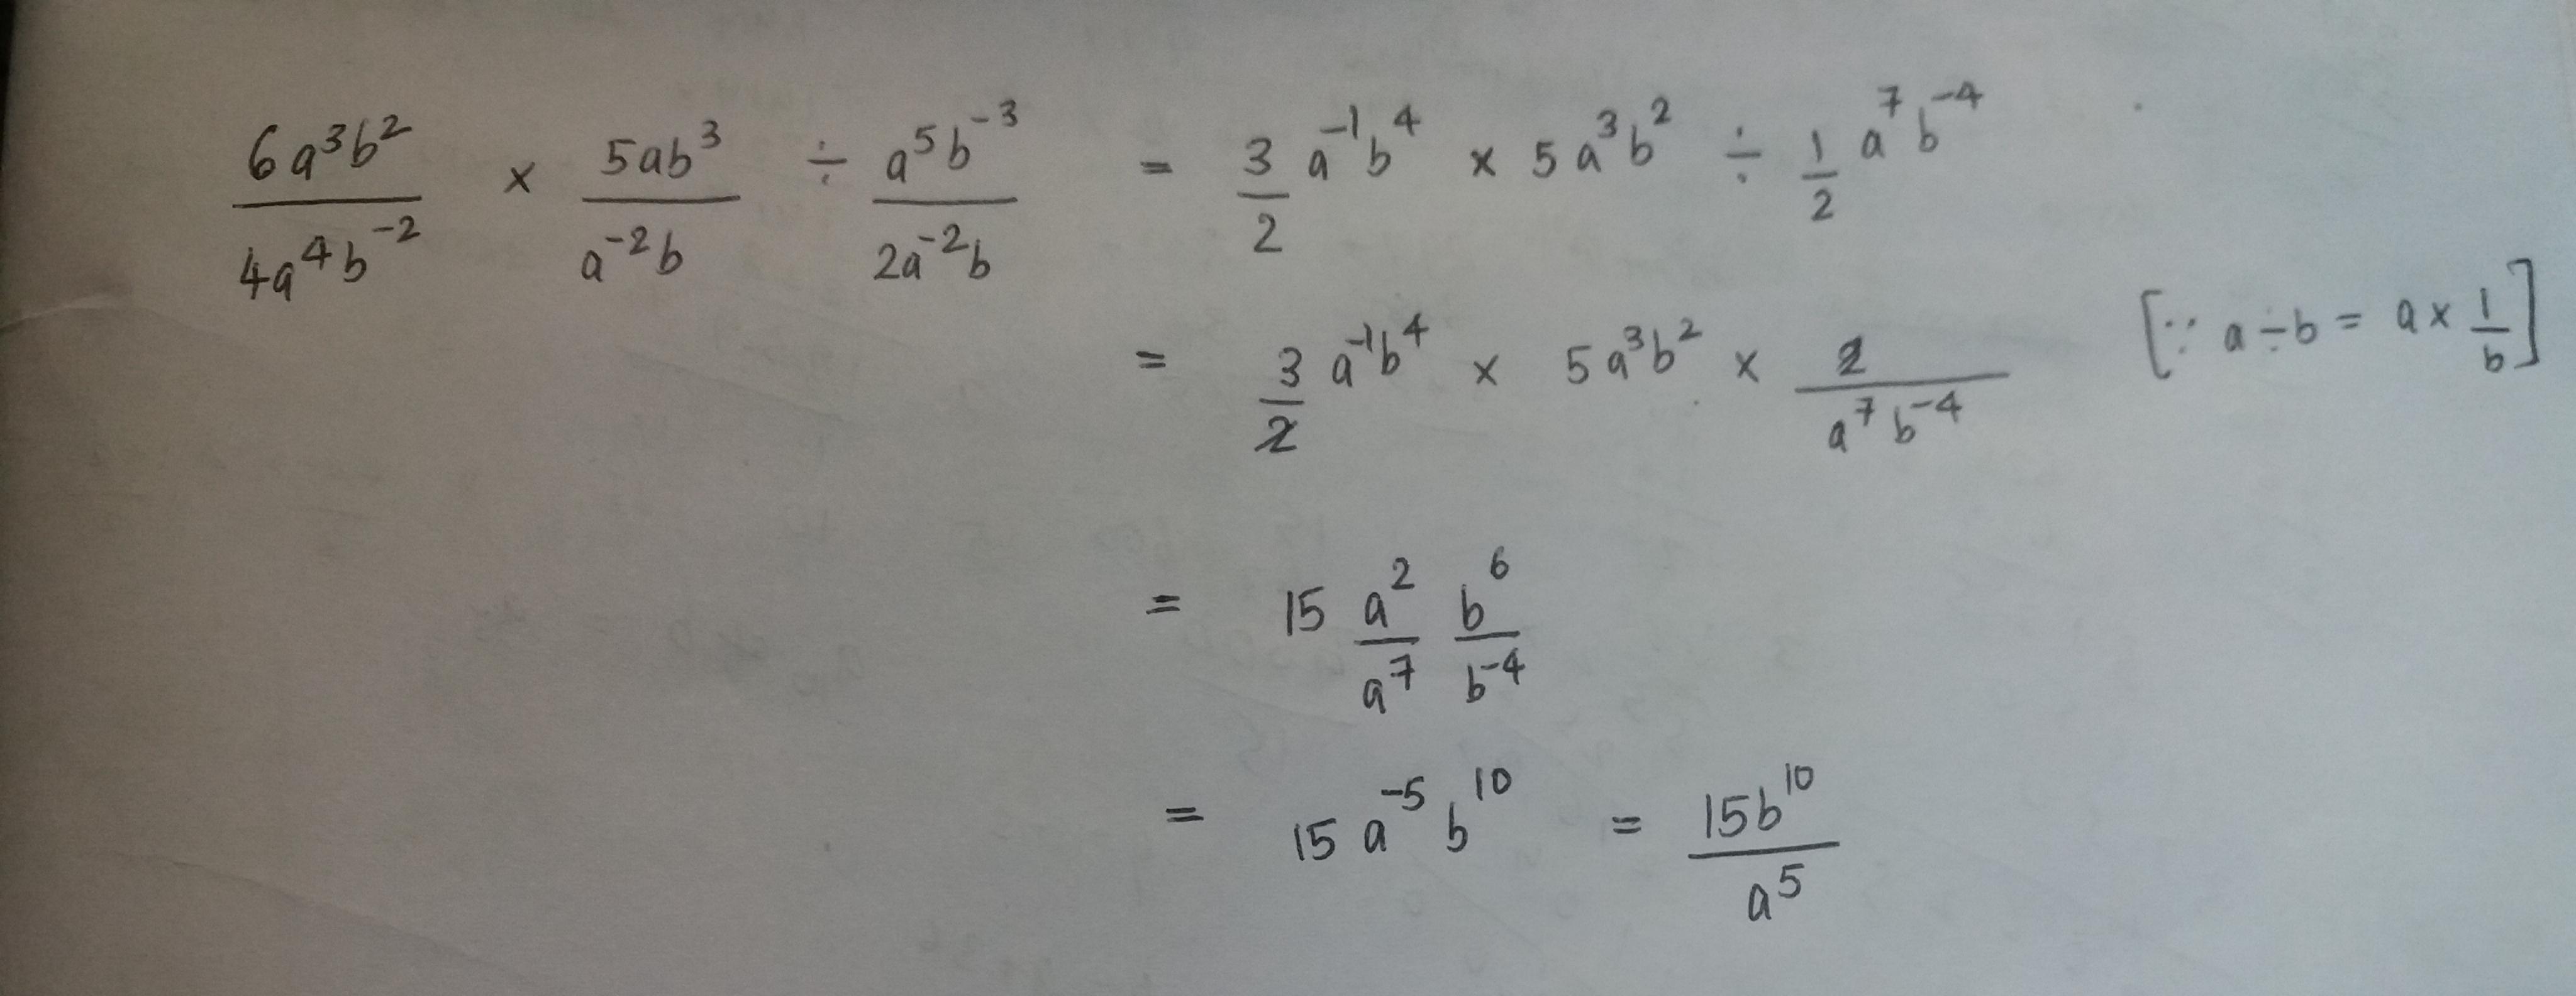 6a³b²/4a⁴b⁻² × 5ab³/a⁻²b ÷ a⁵b⁻³/2a⁻²b = 3/2 a⁻¹b⁴ × 5a³b² ÷ 1/2 a⁷b⁻⁴
= 3/2 a⁻¹b⁴ × 5a³b² × 2/a⁷b⁻⁴ [∵ a÷b = a × 1/b]
= 15 a²/a⁷ b⁶/b⁻⁴
= 15 a⁻⁵ b¹⁰ = 15b¹⁰/a⁵